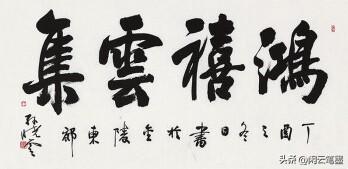 鴻禧雲集
丁酉之冬日書於金陵東郊
孙晓云
头条 @闲云笔墨